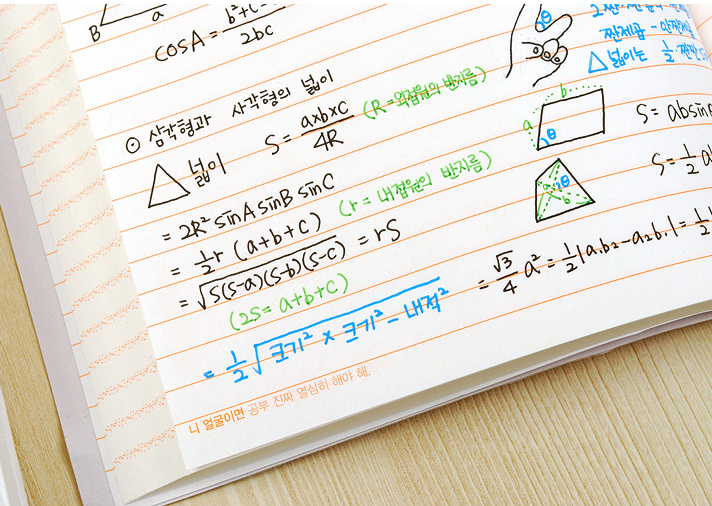 B a
cosA = b²+c²- / 2bc
θ
⊙ 삼각형과 사각형의 넓이
△ 넓이 S = a×b×c / 4R (R = 외접원의 반지름)
= 2R² sinA sinB sinC
= ½r (a+b+c) (r = 내접원의 반지름)
= √s(s-a)(s-b)(s-c) = rS
(2S = a+b+c)
= ½√크기² × 크기² - 내적²
△넓이는 ½
b
a θ
S = absin
θ
a
b
S = ½ a
= √3/4 a² = ½|a₁b₂-a₂b₁| = ½
니 얼굴이면 공부 진짜 열심히 해야 해.